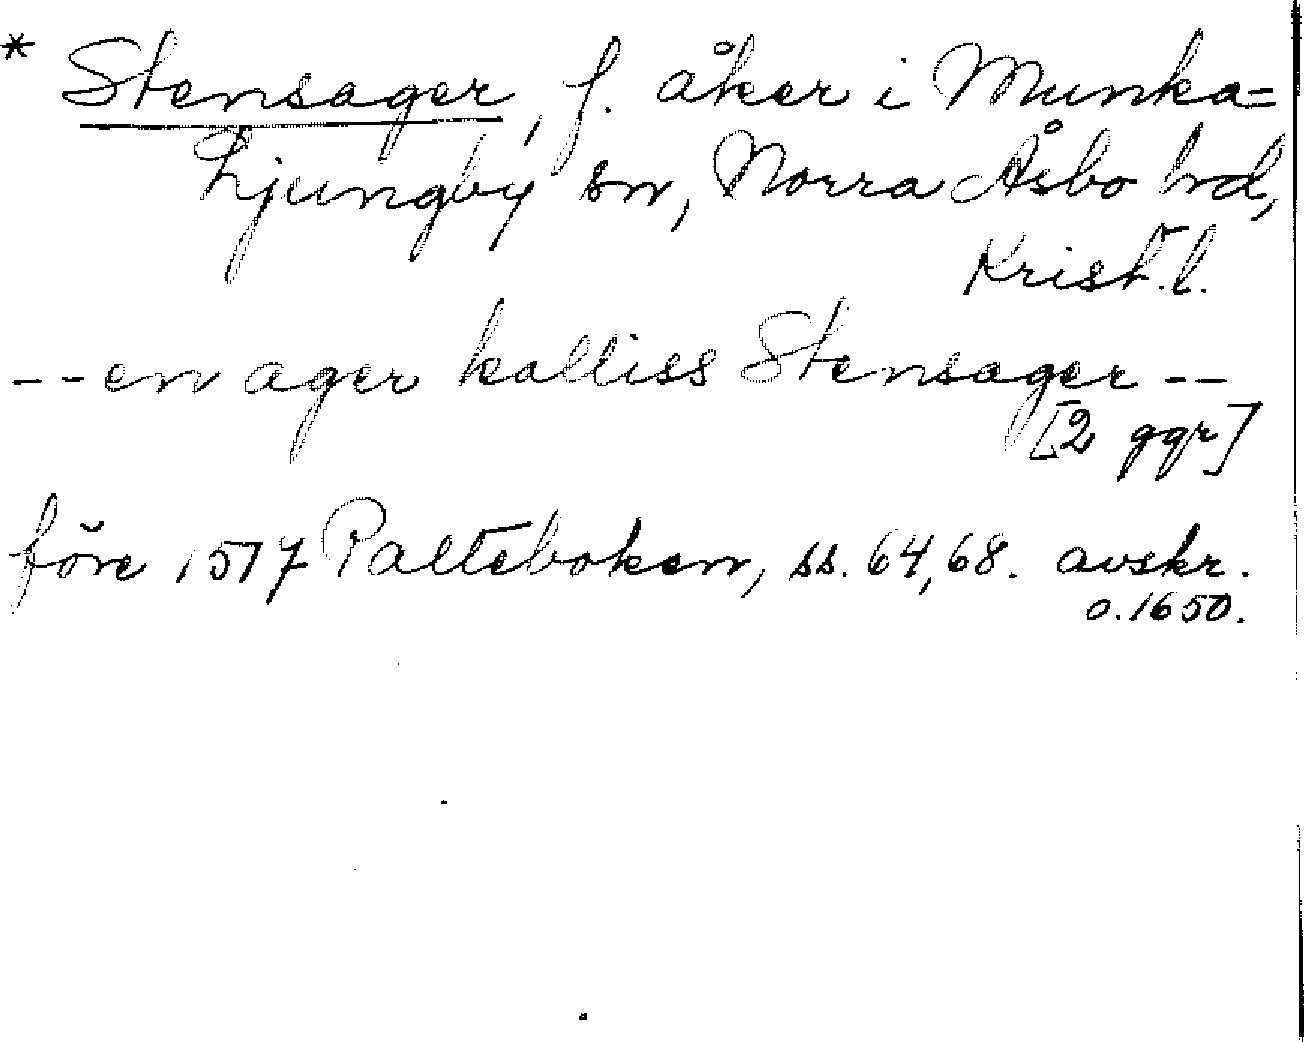 * Stensager, f. åker i Munka=
Ljungby sn, Norra Åsbo hd,
Krist. l.
-- en ager kalliss Stensager --
[2 ggr]
före 1517 Palteboken, ss. 64, 68. avskr.
o. 1650.